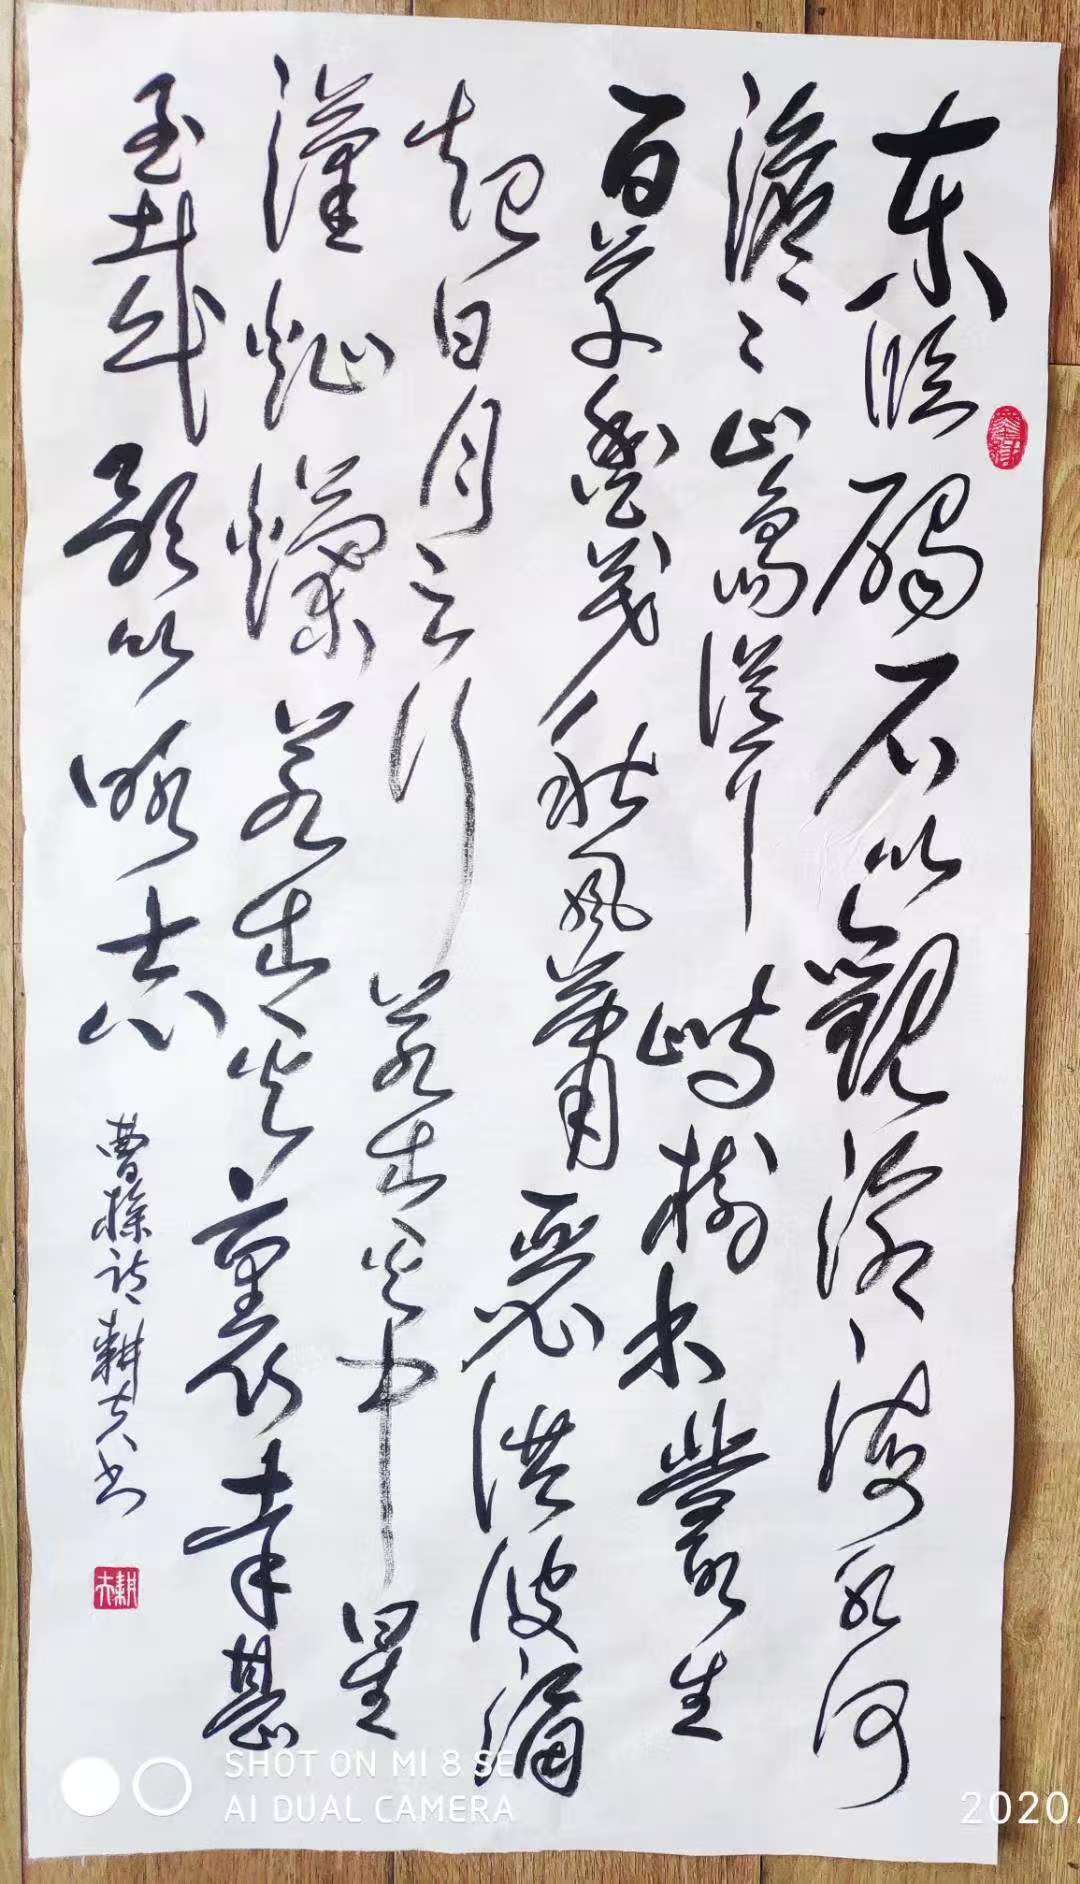 东临碣石以觀滄海水何
澹〻山島聳峙樹木叢生
百草豐茂秋風蕭瑟洪波涌
起日月之行若出其中星
漢灿爛若出其裏幸甚
至哉歌以咏志
曹操詩耕夫书
耕夫
SHOT ON MI 8 SE
AI DUAL CAMERA
2020